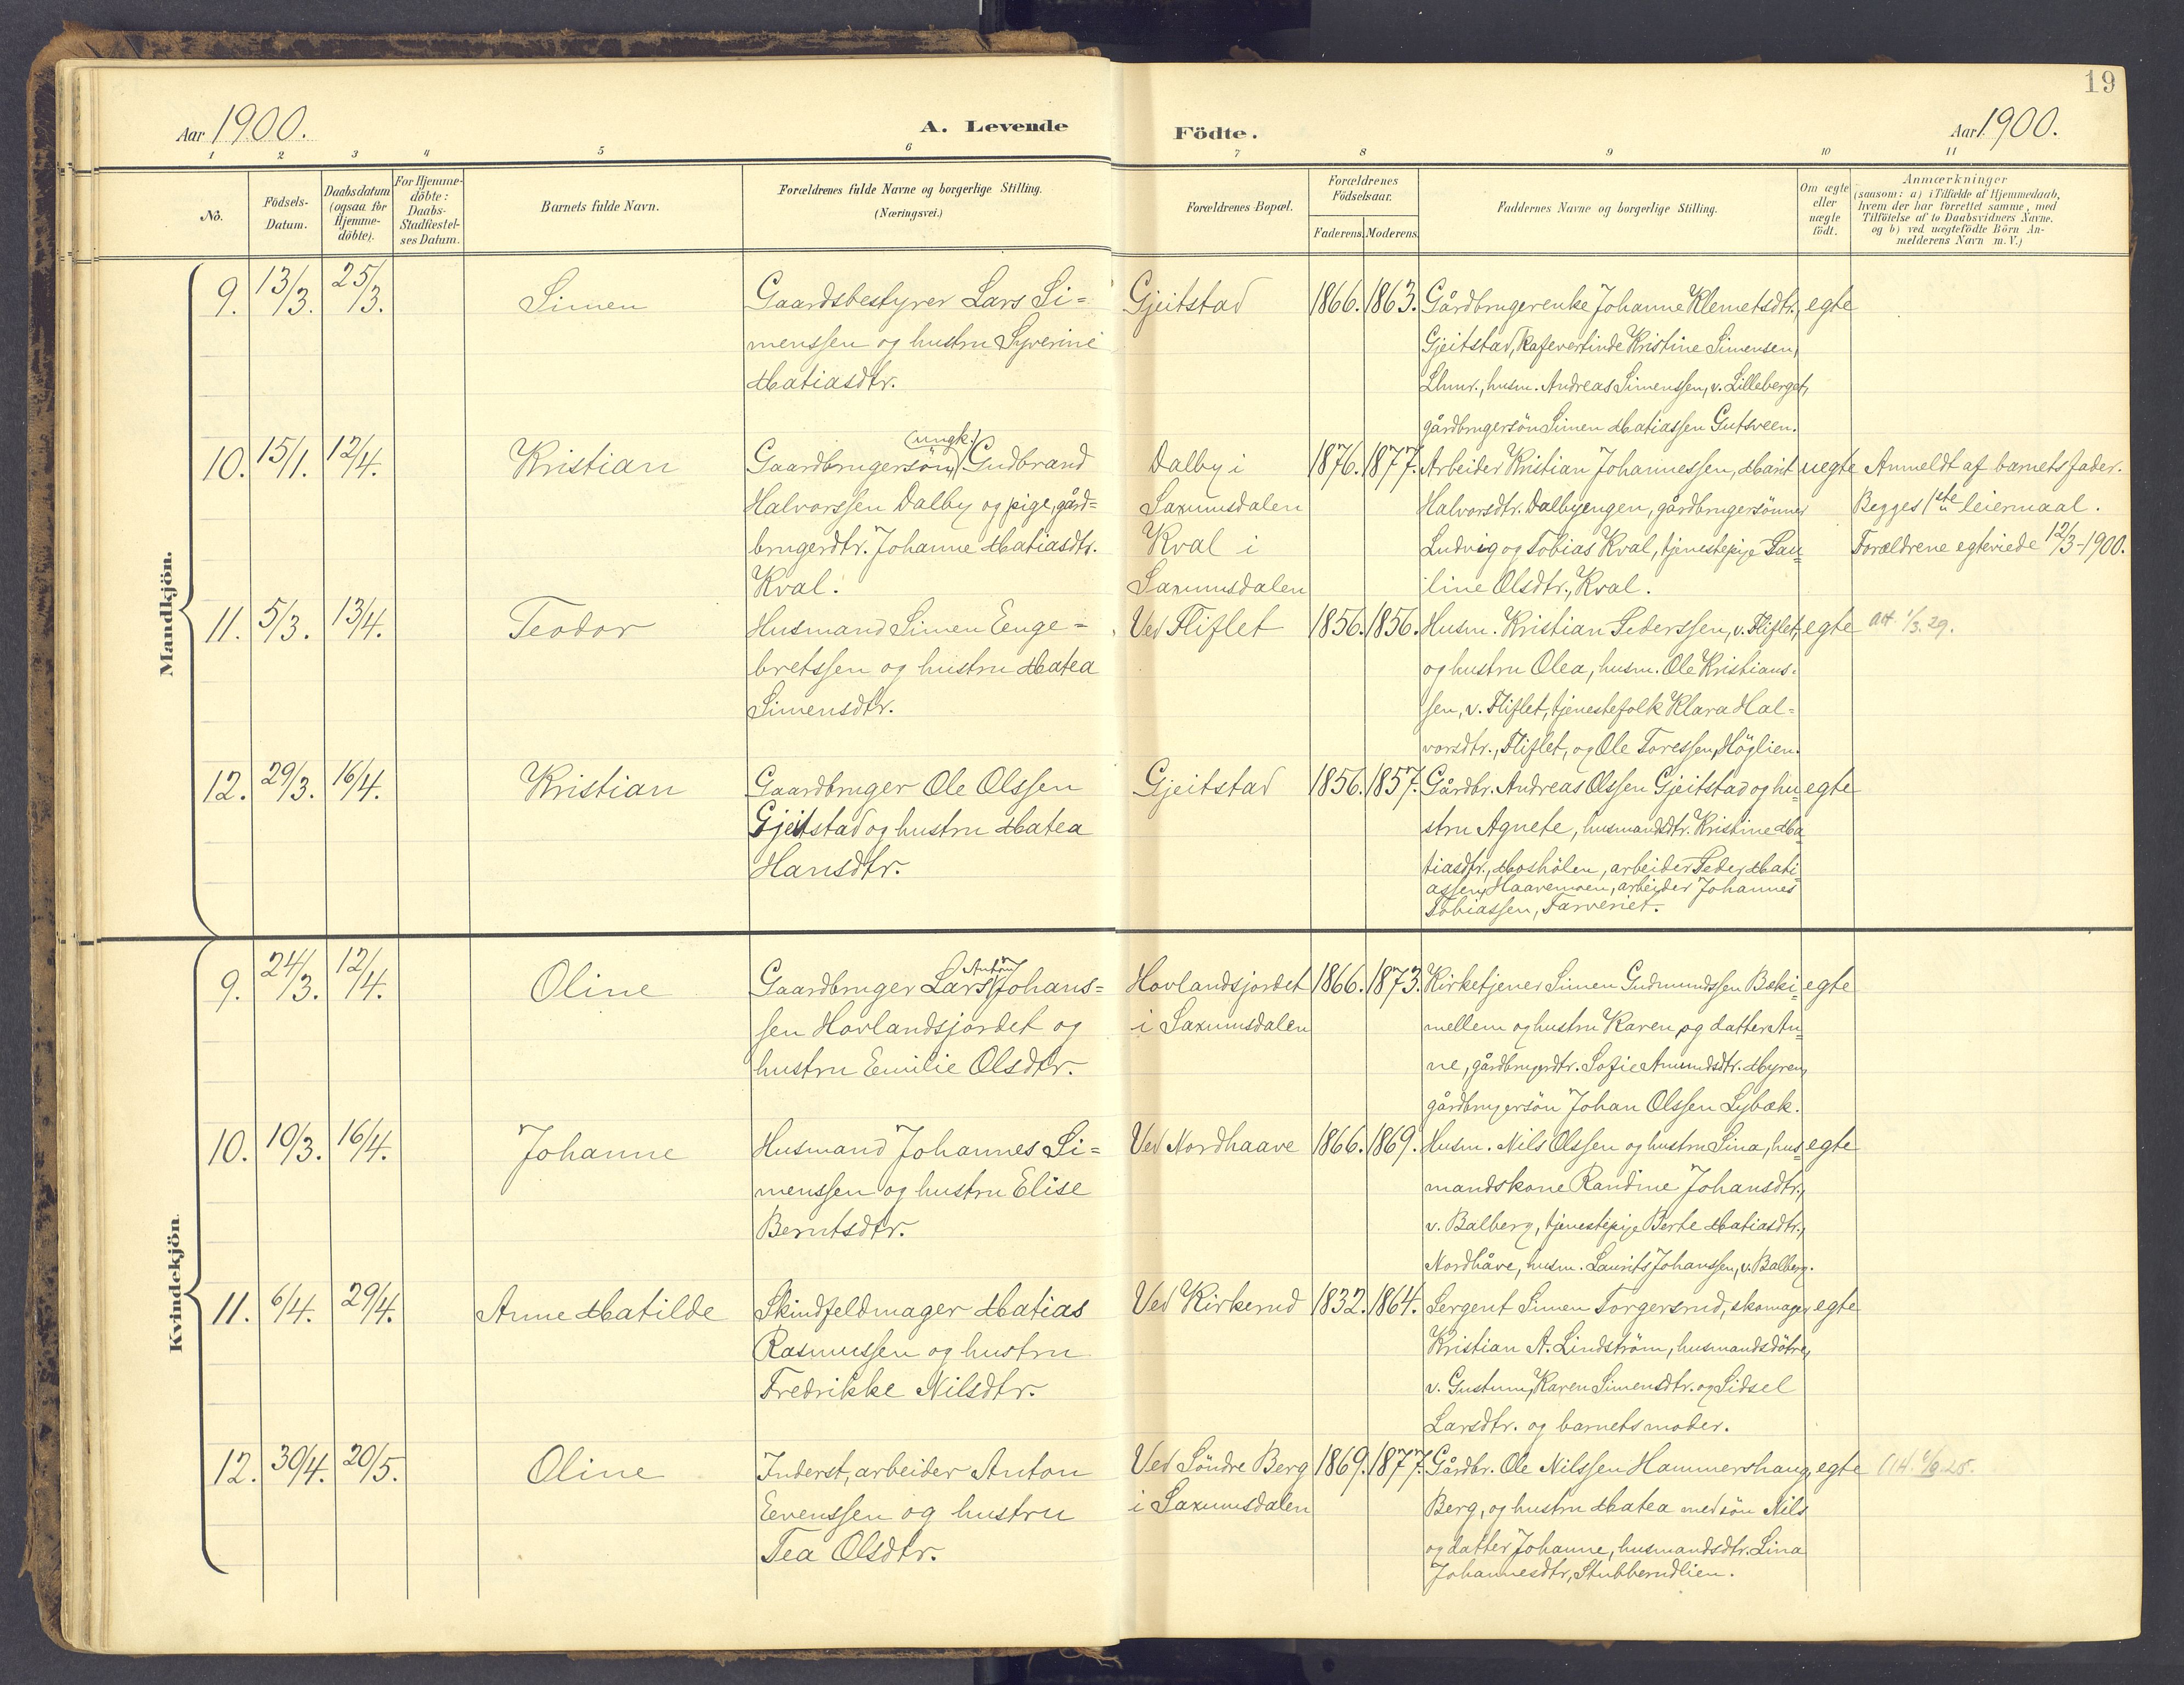 19
Aar 1900.
A. Levende Födte.
Aar 1900.
1 2 3 4 5 6 7 8 9 10 11
No.
Födsels-Datum.
Daabsdatum (ogsaa for Hjemme-döbte).
For Hjemme-döbte: Daabs-Stadfæstel-ses Datum.
Barnets fulde Navn.
Forældrenes fulde Navne og borgerlige Stilling.
(Næringsvei.)
Forældrenes Bopæl.
Forældrenes Födselsaar.
Faderens. Moderens.
Faddernes Navne og borgerlige Stilling.
Om ægte eller uægte födt.
Anmærkninger
(saasom: a) i Tilfælde af Hjemmedaab,
hvem der har forrettet samme, med
Tilföielse af to Daabsvidners Navne.
og b) ved uægtefödte Börn An-
melderens Navn m. V.)
Mandkjön.
9. 13/3. 25/3. Simen
Gaardsbestyrer Lars Si=
menssen og hustru Syverine
Matiasdtr.
Gjeitstad
1866. 1863.
Gårdbrugerenke Johanne Klemetsdtr.,
Gjeitstad, Kafevertinde Kristine Simensen,
Lhmr., husm. Andreas Simenssen, v. Lilleberget,
gårdbrugersön Simen Matiassen Gutsveen.
egte
10. 15/1. 12/4. Kristian
(ungk.)
Gaardbrugersön, Gudbrand
Halvorssen Dalby og pige, gård=
brugerdtr. Johanne Matiasdtr.
Kval.
Dalby i
Saxumsdalen
Kval i
Saxumsdalen
1876. 1877.
Arbeider Kristian Johannessen, Marit
Halvorsdtr. Dalbyengen, gårdbrugersönner
Ludvig og Tobias Kval, tjenestepige Pau=
line Olsdtr., Kval.
uegte
Anmeldt af barnets fader.
Begges 1ste leiermaal.
Forældrene egteviede 12/3-1900.
11. 5/3. 13/4. Teodor
Husmand Simen Enge=
bretssen og hustru Matea
Simensdtr.
Ved Fliflet
1856. 1856.
Husm. Kristian Pederssen, v. Fliflet,
og hustru Olea, husm. Ole Kristians=
sen, v. Fliflet, tjenestefolk Klara Hal=
vorsdtr., Fliflet, og Ole Toressen, Höglien.
egte
att 1/3.29.
12. 29/3. 16/4. Kristian
Gaardbruger Ole Olssen
Gjeitstad og hustru Matea
Hansdtr.
Gjeitstad
1856. 1857.
Gårdbr. Andreas Olssen Gjeitstad og hu
stru Agnete, husmandsdtr. Kristine Ma
tiasdtr., Moshölen, arbeider Peder Mati
assen, Haavemoen, arbeider Johannes
Tobiassen, Farveriet.
egte
Kvindekjön.
9. 24/3. 12/4. Oline
Anton
Gaardbruger Lars Johans=
sen Hovlandsjordet og
hustru Emilie Olsdtr.
Hovlandsjordet
i Saxumsdalen
1866. 1873.
Kirketjener Simen Gudmundssen Bæki=
mellem og hustru Karen og datter An
ne, gårdbrugerdtr. Sofie Amundsdtr. Myren,
gårdbrugersön Johan Olssen Lybæk.
egte
10. 10/3. 16/4. Johanne
Husmand Johannes Si=
menssen og hustru Elise
Berntsdtr.
Ved Nordhaave
1866. 1869.
Husm. Nils Olssen og hustru Lina, hus
mandskone Randine Johansdtr.,
v. Balberg, tjenestepige Berte Matiasdtr.,
Nordhåve, husm. Laurits Johanssen, v. Balberg.
egte
11. 6/4. 29/4. Anne Matilde
Skindfeldmager Matias
Rasmussen og hustru
Fredrikke Nilsdtr.
Ved Kirkerud
1832. 1864.
Sergent Simen Torgersrud, skomager
Kristian A. Lindström, husmandsdötre,
v. Gustum, Karen Simensdtr. og Sidsel
Larsdtr. og barnets moder.
egte
12. 30/4. 20/5. Oline
Inderst, arbeider Anton
Evenssen og hustru
Tea Olsdtr.
Ved Söndre Berg
i Saxumsdalen
1869. 1877.
Gårdbr. Ole Nilssen Hammershaug,
Berg, og hustru Matea med sön Nils
og datter Johanne, husmandsdtr. Lina
Johannesdtr, Stubberudlien.
egte